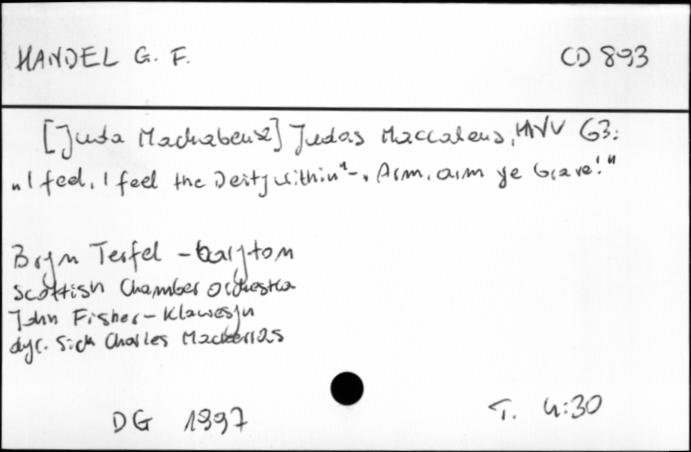 HANDEL G. F.
CD 893
[Juda Machabeusz] Judas Maccabeus, HWV 63:
„I feel, I feel the Deity within"-„Arm, arm ye brave!"
Bryn Terfel - baryton
Scottish Chamber Orchestra
John Fisher - Klawesyn
dyr. Sir Charles Mackerras
DG 1997
T. 4:30